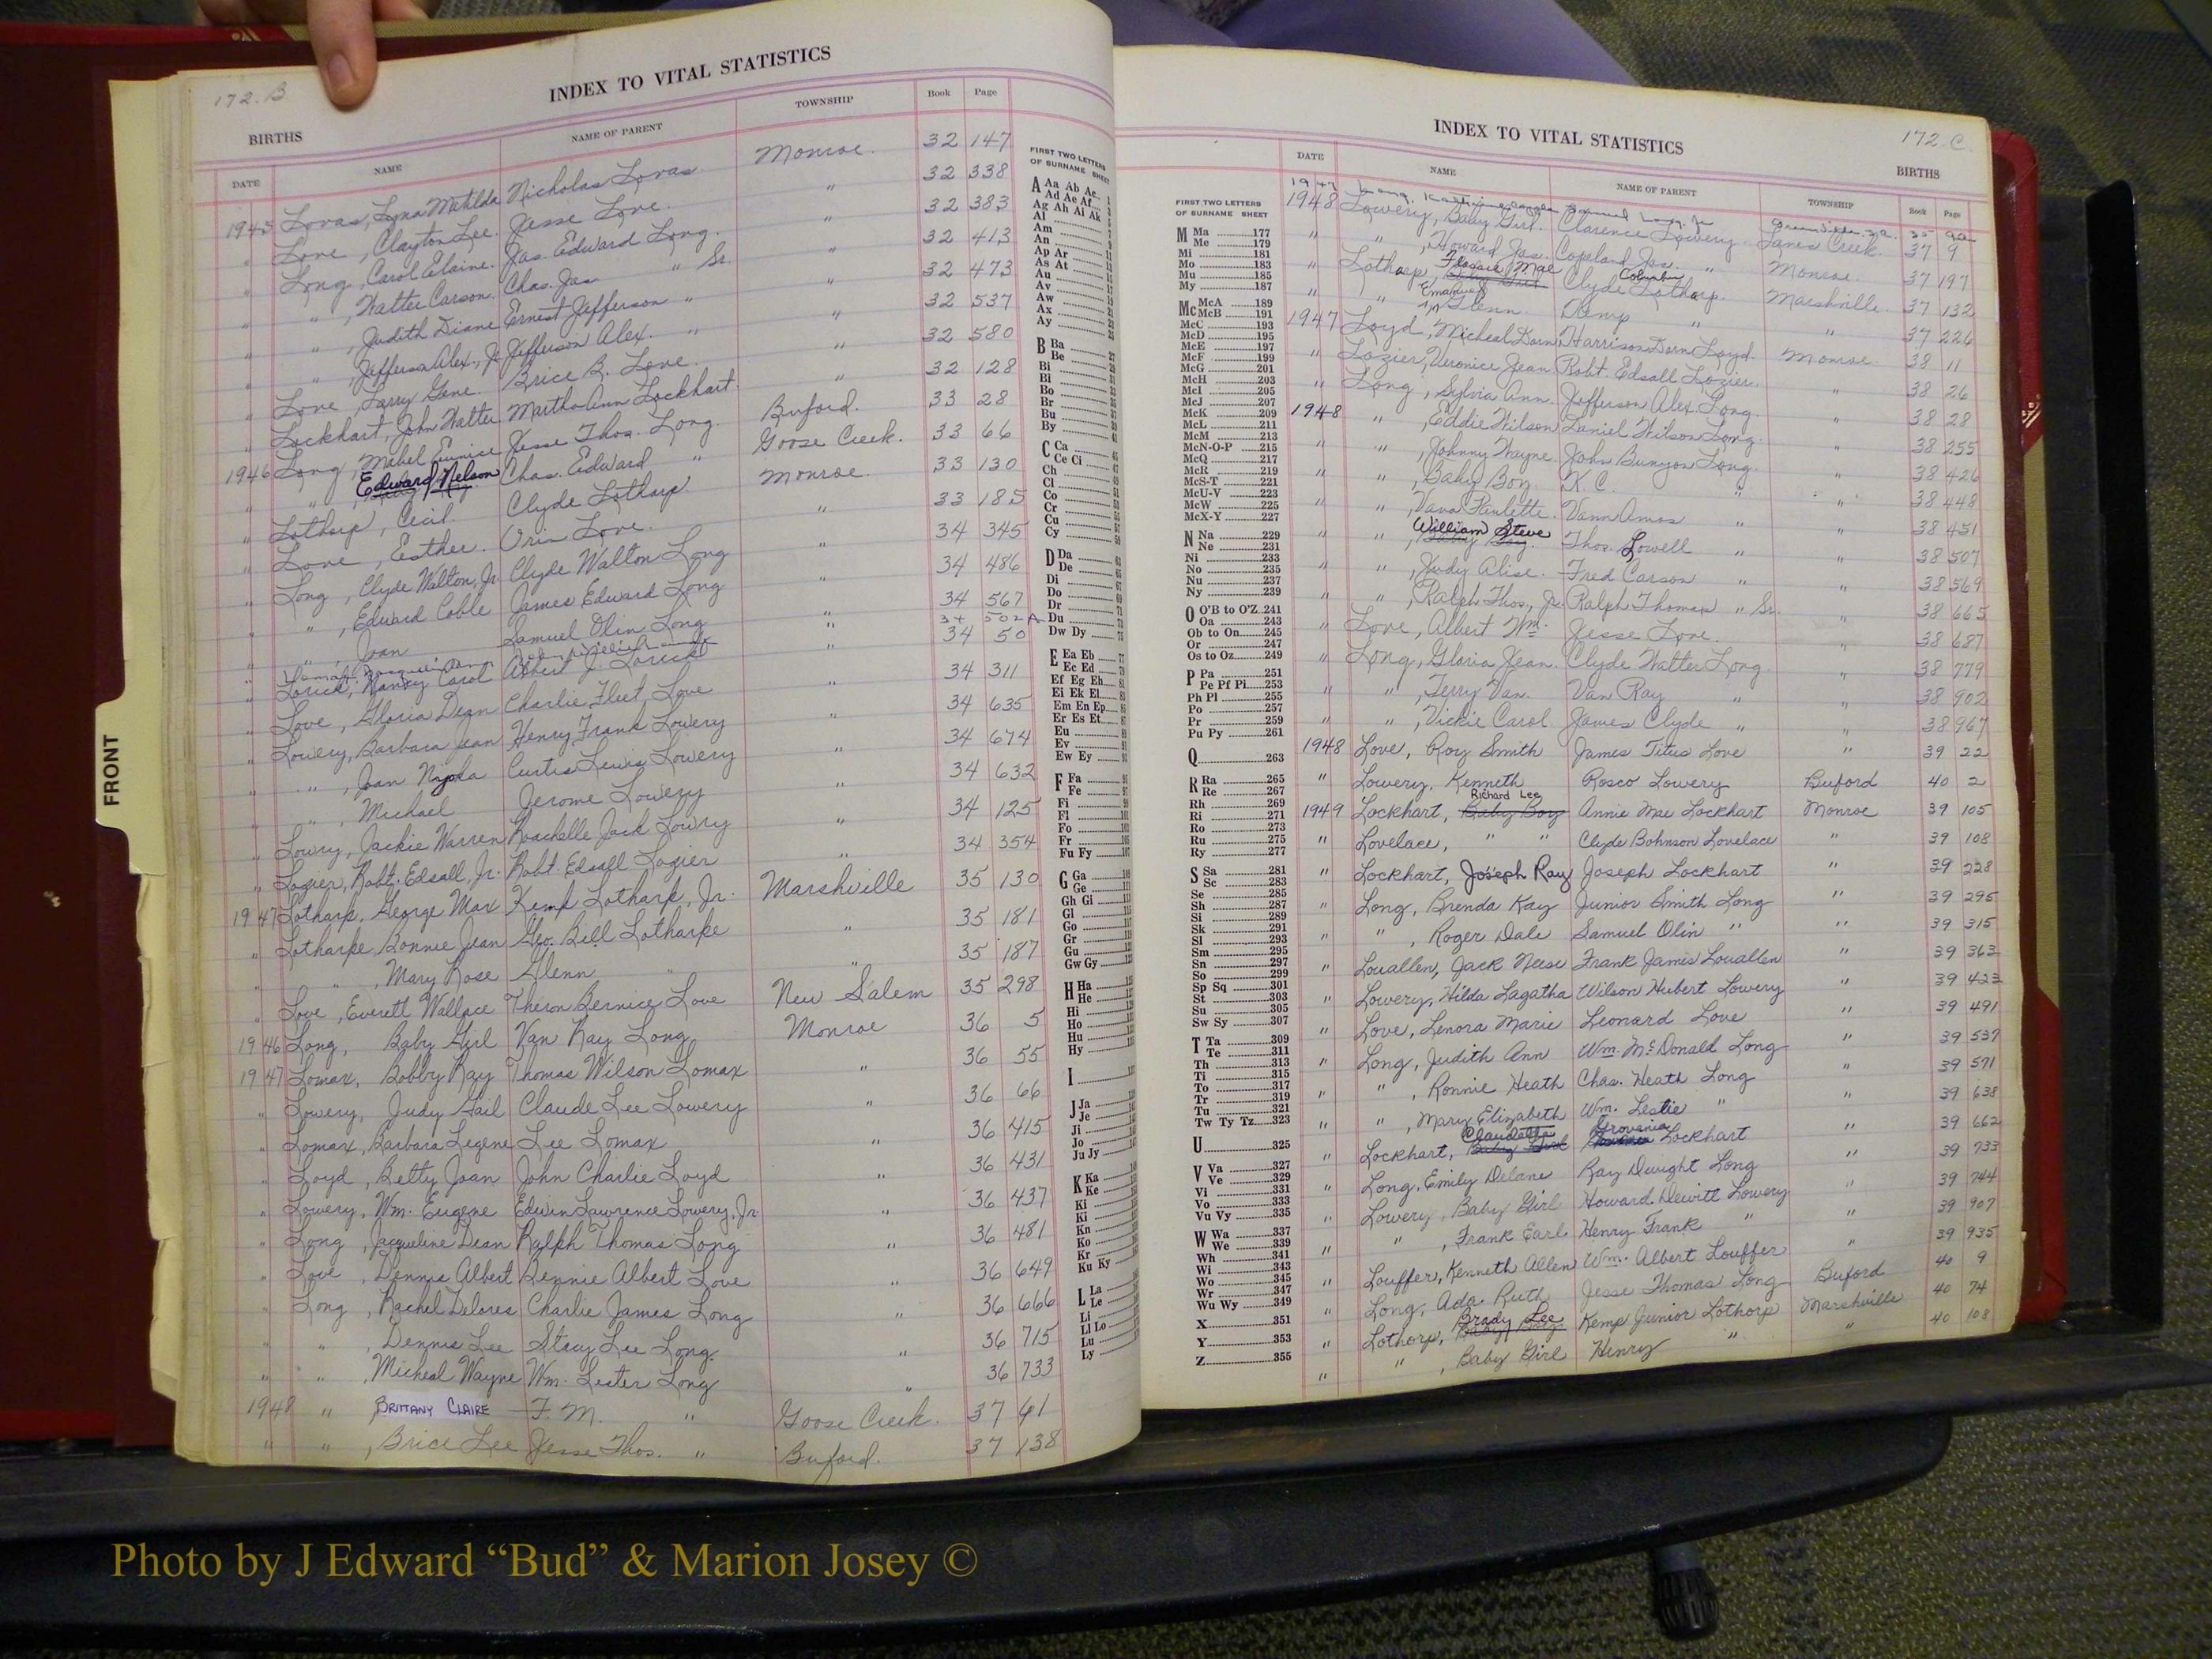 172. B
INDEX TO VITAL STATISTICS
BIRTHS
DATE NAME NAME OF PARENT TOWNSHIP Book Page
1945 Lovas, Lyna Matilda Nicholas Lovas Monroe. 32 147
" Love, Clayton Lee. Jesse Love. " 32 338
" Long, Carol Elaine. Jas. Edward Long. " 32 383
" " , Walter Carson. Chas. Jas. " Sr. " 32 413
" " , Judith Diane Ernest Jefferson " " 32 473
" " , Jefferson Alex., Jr. Jefferson Alex. " " 32 537
" Love, Larry Gene. Brice B. Love. " 32 580
" Lockhart, John Walter Martha Ann Lockhart. " 32 128
1946 Long, Mabel Eunice Jesse Thos. Long. Buford. 33 28
" " , Edward Nelson Chas. Edward " Goose Creek. 33 66
" Lothorp, Cecil. Clyde Lothorp. Monroe 33 130
" Love, Eesther. Orin Love. " 33 185
" Long, Clyde Walton, Jr. Clyde Walton Long " 34 345
" " , Edward Coble James Edward Long " 34 486
" " , Joan Samuel Olin Long " 34 567
34 502A
" Lorick, Nancy Carol Albert J. Lorick " 34 50
" Love, Gloria Dean Charlie Fleet Love " 34 311
" Lowery, Barbara Jean Henry Frank Lowery " 34 635
" " , Joan Nyoka Curtis Lewis Lowery " 34 674
" " , Michael Jerome Lowery " 34 632
" Lowry, Jackie Warren Roachelle Jack Lowry " 34 125
" Lozier, Robt. Edsall, Jr. Robt. Edsall Lozier " 34 354
1947 Lotharp, George Max Kemp Lotharp, Jr. Marshville 35 130
" Lotharpe Bonnie Jean Geo. Bell Lotharpe " 35 181
" " , Mary Rose Glenn " " 35 187
" Love, Everett Wallace Theron Bernice Love New Salem 35 298
1946 Long, Baby Girl Van Ray Long Monroe 36 5
1947 Lomax, Bobby Ray Thomas Wilson Lomax " 36 55
" Lowery, Judy Gail Claude Lee Lowery " 36 66
" Lomax, Barbara Legene Lee Lomax " 36 415
" Loyd, Betty Joan John Charlie Loyd " 36 431
" Lowery, Wm. Eugene Edwin Lawrence Lowery, Jr. " 36 437
" Long, Jacqueline Dean Ralph Thomas Long " 36 481
" Love, Dennis Albert Bennie Albert Love " 36 649
" Long, Rachel Delores Charlie James Long " 36 666
" " , Dennis Lee Stacy Lee Long. " 36 715
" " , Micheal Wayne Wm. Lester Long " 36 733
1948 " , BRITTANY CLAIRE F. M. " Goose Creek. 37 61
" " , Brice Lee Jesse Thos. " Buford. 37 138
FRONT
FIRST TWO LETTERS
OF SURNAME SHEET
A Aa Ab Ae
Ad Ae Af
Ag Ah Ai Ak
Al
Am
An
Ap Ar
As At
Au
Av
Aw
Ax
Ay
B Ba
Be
Bi
Bo
Br
Bu
By
C Ca
Ce Ci
Ch
Cl
Co
Cr
Cu
Cy
D Da
De
Di
Do
Dr
Du
Dw Dy
E Ea Eb
Ec Ed
Ef Eg Eh
Ei Ek El
Em En Ep
Er Es Et
Eu
Ev
Ew Ey
F Fa
Fe
Fi
Fl
Fo
Fr
Fu Fy
G Ga
Ge
Gh Gi
Gl
Go
Gr
Gu
Gw Gy
H Ha
He
Hi
Ho
Hu
Hy
I
J Ja
Je
Ji
Jo
Ju Jy
K Ka
Ke
Ki
Kn
Ko
Kr
Ku Ky
L La
Le
Li
Ll Lo
Lu
Ly
INDEX TO VITAL STATISTICS
172. C.
BIRTHS
DATE NAME NAME OF PARENT TOWNSHIP Book Page
FIRST TWO LETTERS
OF SURNAME SHEET
M Ma 177
Me 179
Mi 181
Mo 183
Mu 185
My 187
Mc McA 189
McB 191
McC 193
McD 195
McE 197
McF 199
McG 201
McH 203
McI 205
McJ 207
McK 209
McL 211
McM 213
McN-O-P 215
McQ 217
McR 219
McS-T 221
McU-V 223
McW 225
McX-Y 227
N Na 229
Ne 231
Ni 233
No 235
Nu 237
Ny 239
O O'B to O'Z 241
Oa 243
Ob to On 245
Or 247
Os to Oz 249
P Pa 251
Pe Pf Pi 253
Ph Pl 255
Po 257
Pr 259
Pu Py 261
Q 263
R Ra 265
Re 267
Rh 269
Ri 271
Ro 273
Ru 275
Ry 277
S Sa 281
Sc 283
Se 285
Sh 287
Si 289
Sk 291
Sl 293
Sm 295
Sn 297
So 299
Sp Sq 301
St 303
Su 305
Sw Sy 307
T Ta 309
Te 311
Th 313
Ti 315
To 317
Tr 319
Tu 321
Tw Ty Tz 323
U 325
V Va 327
Ve 329
Vi 331
Vo 333
Vu Vy 335
W Wa 337
We 339
Wh 341
Wi 343
Wo 345
Wr 347
Wu Wy 349
X 351
Y 353
Z 355
1947 Long, Samuel Long, Jr
1948 Lowery, Baby Girl. Clarence Lowery. Lanes Creek. 37 9
" " , Howard Jas. Copeland Jas. " Monroe. 37 197
" Lothorp, Flossie Mae Clyde Columbus Lothorp. Marshville. 37 132
" " , Emanuel Glenn. Kemp " " 37 226
1947 Loyd, Micheal Dorn Harrison Dorn Loyd. Monroe. 38 11
" Lozier, Veronice Jean Robt. Edsall Lozier. 38 26
" Long, Sylvia Ann. Jefferson Alex. Long. " 38 28
1948 " , Eddie Wilson Daniel Wilson Long. " 38 255
" " , Johnny Wayne. John Bunyon Long. " 38 426
" " , Baby Boy. K. C. " " 38 448
" " , Vava Paulette. Vann Amos " " 38 451
" " , William Steve Thos. Lowell " " 38 507
" " , Judy Alise. Fred Carson " " 38 569
" " , Ralph Thos., Jr. Ralph Thomas " Sr. " 38 665
" Love, Albert Wm. Jesse Love. " 38 687
" Long, Gloria Jean. Clyde Walter Long. " 38 779
" " , Terry Van. Van Ray " " 38 902
" " , Vickie Carol James Clyde " " 38 967
1948 Love, Roy Smith James Titus Love " 39 22
" Lowery, Kenneth Rosco Lowery Buford 40 2
1949 Lockhart, Baby Boy Richard Lee Annie Mae Lockhart Monroe 39 105
" Lovelace, " " Clyde Bohnson Lovelace " 39 108
" Lockhart, Joseph Ray Joseph Lockhart " 39 228
" Long, Brenda Kay Junior Smith Long " 39 295
" " , Roger Dale Samuel Olin " " 39 315
" Louallen, Jack Neese Frank James Louallen " 39 363
" Lowery, Hilda Lagatha Wilson Hubert Lowery " 39 423
" Love, Lenora Marie Leonard Love " 39 491
" Long, Judith Ann Wm. McDonald Long " 39 537
" " , Ronnie Heath Chas. Heath Long " 39 571
" " , Mary Elizabeth Wm. Leslie " " 39 638
" Lockhart, Claudette Baby Girl Grovania Lockhart " 39 662
" Long, Emily Delane Ray Dwight Long " 39 733
" Lowery, Baby Girl Howard Dewitt Lowery " 39 744
" " , Frank Earl Henry Frank " " 39 907
" Louffer, Kenneth Allen Wm. Albert Louffer " 39 935
" Long, Ada Ruth Jesse Thomas Long Buford 40 9
" Lothorp, Brady Lee Kemp Junior Lothorp Marshville 40 74
" " , Baby Girl Henry " " 40 108
Photo by J Edward “Bud” & Marion Josey ©